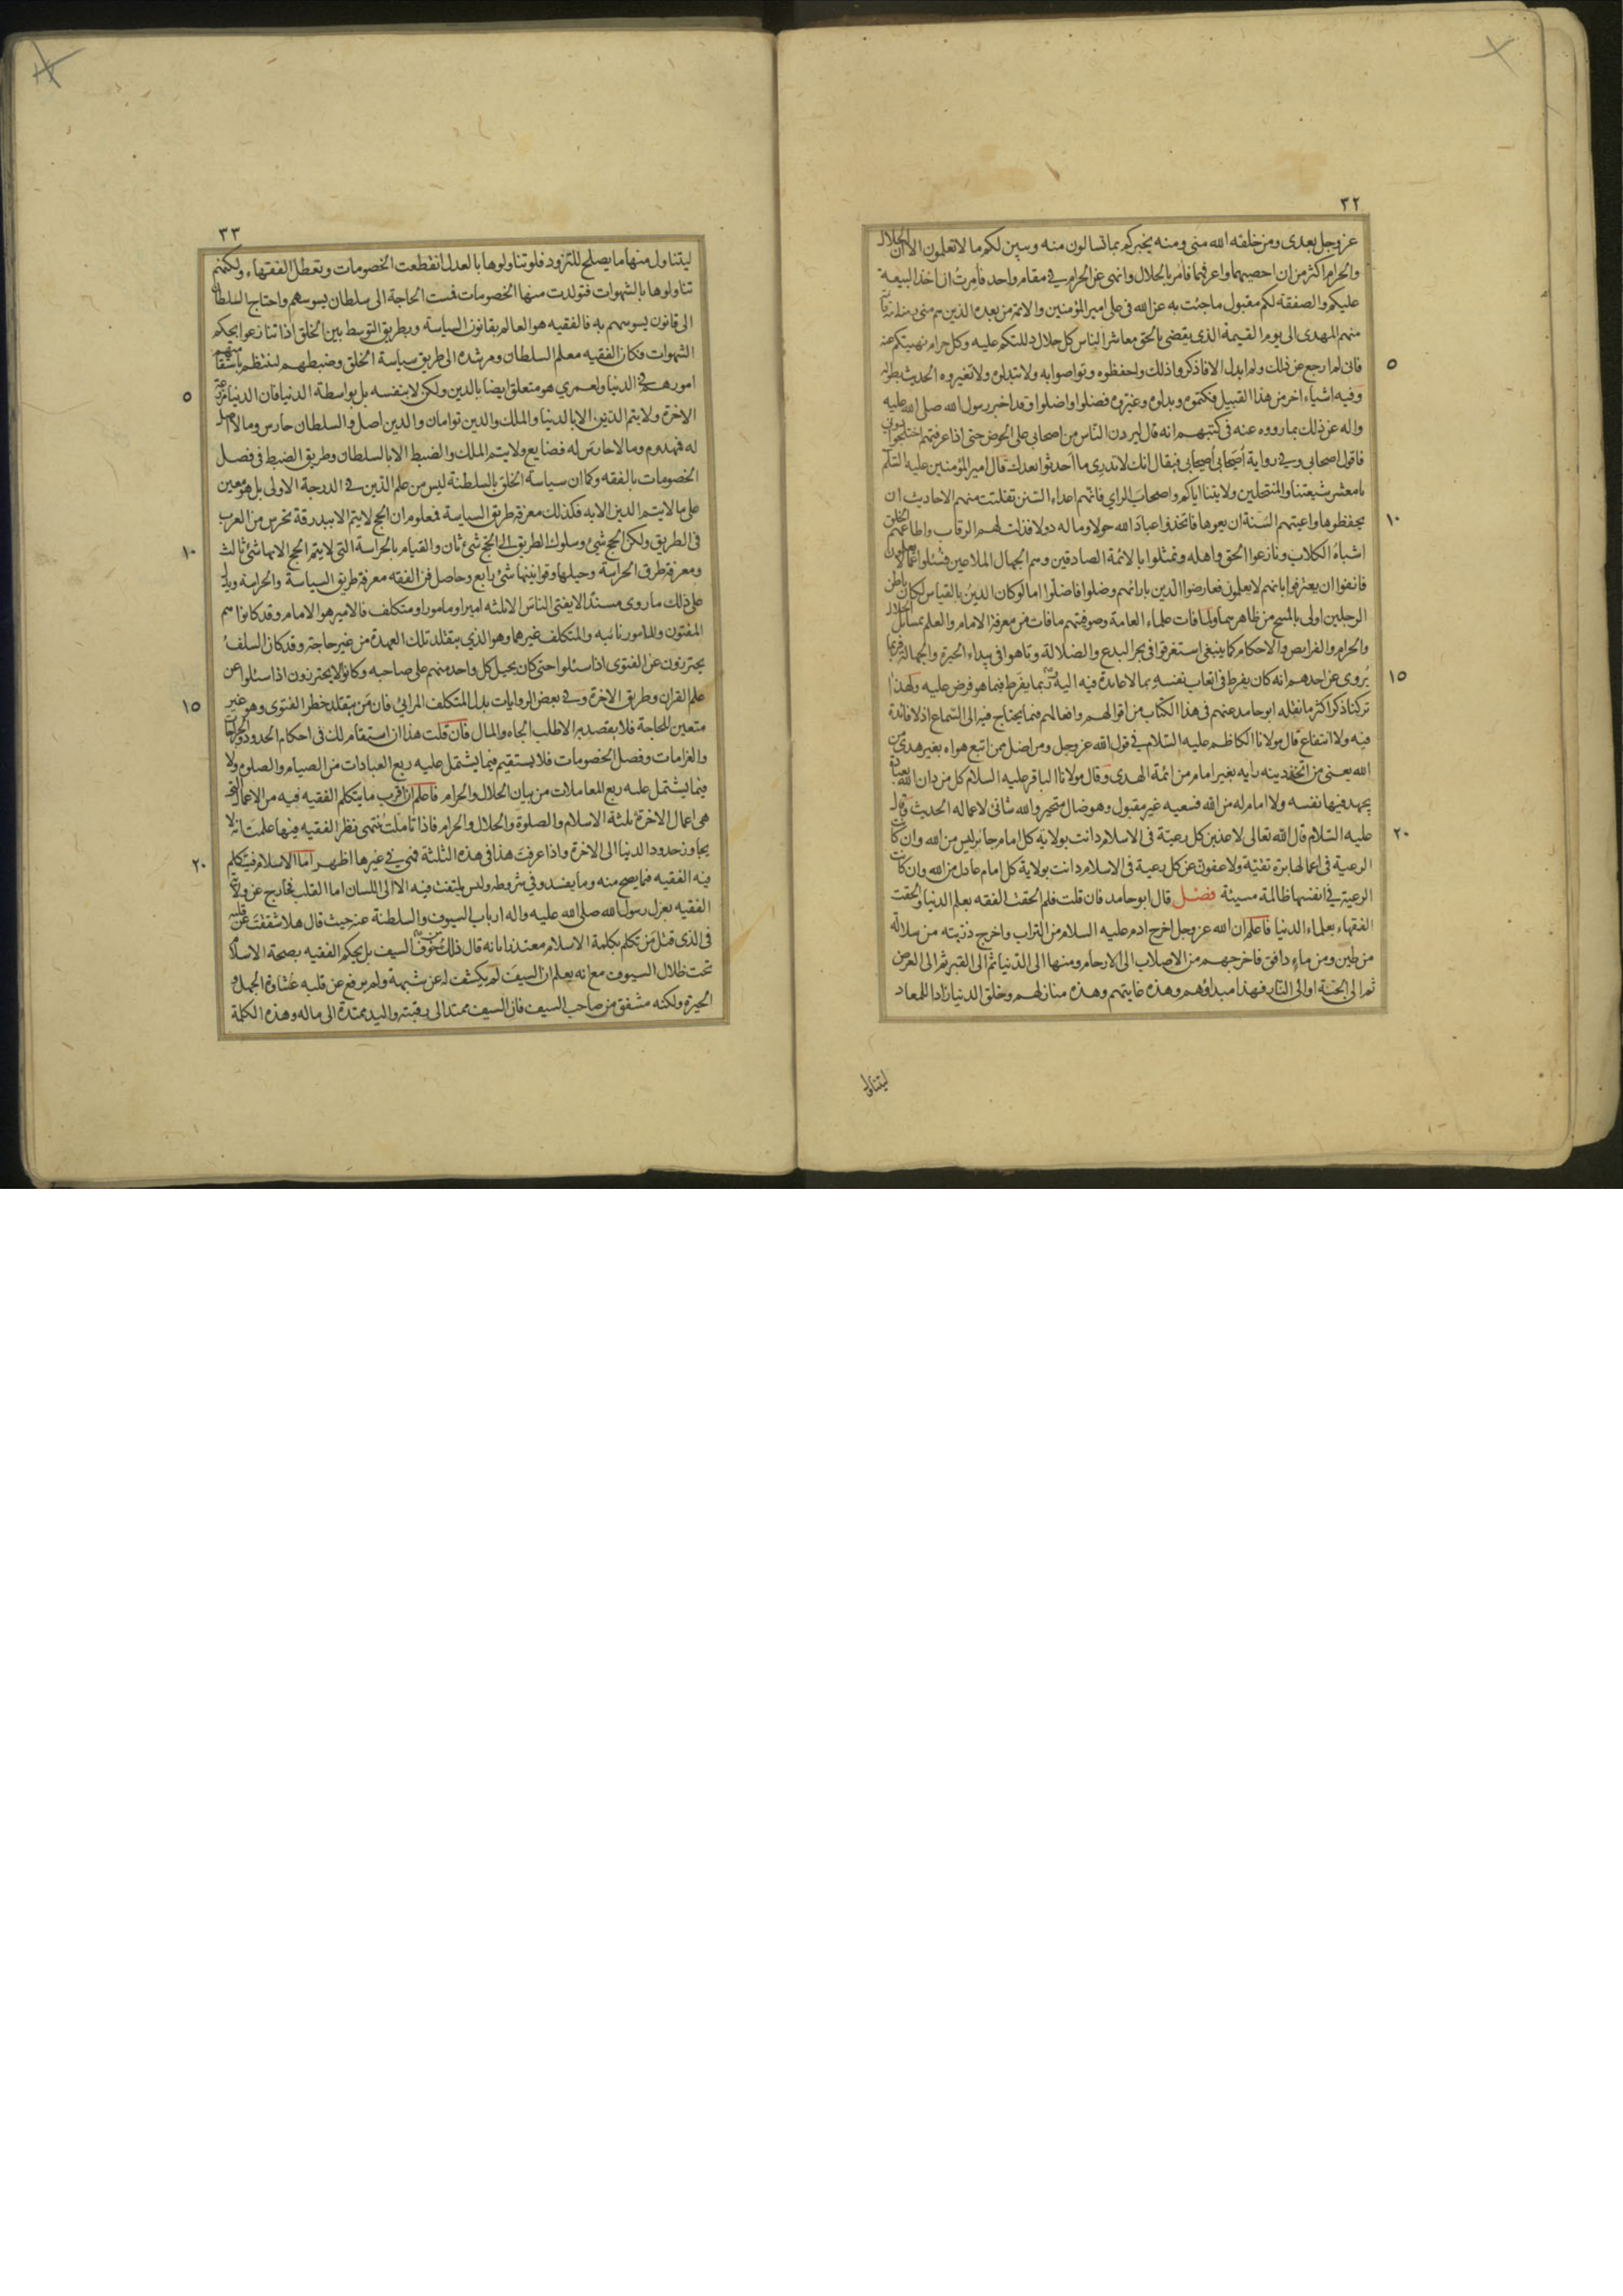 ٣٢
عز وجل بعدى ومن خلفه الله منى ومنه يخبركم بما تسالون منه ويبين لكم ما لا تعلمون الا ان الحلال
والحرام اكثر من ان احصيهما واعرفهما فامر بالحلال وانهى عن الحرام فى مقام واحد فامرت ان اخذ البيعة
عليكم والصفقة لكم بقبول ما جئت به عن الله فى على امير المؤمنين والائمة من بعده الذين هم منى ومنه
منهم المهدى الى يوم القيمة الذى يقضى بالحق معاشر الناس كل حلال دللتكم عليه وكل حرام نهيتكم عنه
٥
فانى لم ارجع عن ذلك ولم ابدل الا فاذكروا ذلك واحفظوه وتواصوا به ولا تبدلوه ولا تغيروه الحديث بطوله
وفيه اشياء اخر من هذا القبيل فكتموه وبدلوه وغيروه فضلوا واضلوا وقد اخبر رسول الله صلى الله عليه
واله عن ذلك بما رووه عنه فى كتبهم انه قال ليردن الناس من اصحابى على الحوض حتى اذا عرفتهم اختلجوا دونى
فاقول اصحابى وفى رواية أصيحابى أصيحابى فيقال انك لا تدرى ما احدثوا بعدك قال امير المؤمنين عليه السلم
يا معشر شيعتنا والمنتحلين ولايتنا اياكم واصحاب الراى فانهم اعداء السنن تفلتت منهم الاحاديث ان
١٠
يحفظوها واعيتهم السنة ان يعوها فاتخذوا عباد الله خولا وماله دولا فذلت لهم الرقاب واطاعهم الخلق
اشباه الكلاب ونازعوا الحق واهله وتمثلوا بالائمة الصادقين وهم الجهال الملاعين فسئلوا عما لا يعلمون
فانفوا ان يعترفوا بانهم لا يعلمون فعارضوا الدين بارائهم وضلوا فاضلوا اما لو كان الدين بالقياس لكان باطن
الرجلين اولى بالمسح من ظاهرهما ولما فات علماء العامة وصوفيتهم ما فات من معرفة الامام والعلم بمسائل الحلال
والحرام والفرايض والاحكام كما ينبغى استغرقوا فى بحر البدع والضلالة وتاهوا فى بيداء الحيرة والجهالة فربما
١٥
يُروى عن احدهم انه كان يفرط فى اتعاب نفسه بما لا عايدة فيه اليه وربما يفرط فيما هو فرض عليه ولهذا
تركنا ذكر اكثر ما نقله ابو حامد عنهم فى هذا الكتاب من اقوالهم وافعالهم فيما يحتاج فيه الى السماع اذ لا فائدة
فيه ولا انتفاع قال مولانا الكاظم عليه السلام فى قول الله عز وجل ومن اضل ممن اتبع هواه بغير هدى من
الله يعنى من اتخذ دينه رايه بغير امام من ائمة الهدى وقال مولانا الباقر عليه السلام كل من دان الله بعبادة
يجهد فيها نفسه ولا امام له من الله فسعيه غير مقبول وهو ضال متحير والله شانئ لاعماله الحديث وقال
٢٠
عليه السلام قال الله تعالى لاعذبن كل رعية فى الاسلام دانت بولاية كل امام جائر ليس من الله وان كانت
الرعية فى اعمالها برة تقية ولاعفون عن كل رعية فى الاسلام دانت بولاية كل امام عادل من الله وان كانت
الرعية فى انفسها ظالمة مسيئة فصل قال ابو حامد فان قلت فلم الحقت الفقه بعلم الدنيا والحقت
الفقهاء بعلماء الدنيا فاعلم ان الله عز وجل اخرج ادم عليه السلام من التراب واخرج ذريته من سلالة
من طين ومن ماء دافق فاخرجهم من الاصلاب الى الارحام ومنها الى الدنيا ثم الى القبر ثم الى العرض
ثم الى الجنة او الى النار فهذا مبداؤهم وهذه غايتهم وهذه منازلهم وخلق الدنيا زادا للمعاد
ليتناول
٣٣
ليتناول منها ما يصلح للتزود فلو تناولوها بالعدل انقطعت الخصومات وتعطل الفقهاء ولكنهم
تناولوها بالشهوات فتولدت منها الخصومات فمست الحاجة الى سلطان يسوسهم واحتاج السلطان
الى قانون يسوسهم به فالفقيه هو العالم بقانون السياسة وبطريق التوسط بين الخلق اذا تنازعوا بحكم
الشهوات فكان الفقيه معلم السلطان ومرشده الى طريق سياسة الخلق وضبطهم لينتظم باستقامتهم
٥
امورهم فى الدنيا ولعمرى هو متعلق ايضا بالدين ولكن لا بنفسه بل بواسطة الدنيا فان الدنيا مزرعة
الاخرة ولا يتم الدين الا بالدنيا والملك والدين توامان والدين اصل والسلطان حارس وما لا اصل
له فمهدوم وما لا حارس له فضايع ولا يتم الملك والضبط الا بالسلطان وطريق الضبط فى فصل
الخصومات بالفقه وكما ان سياسة الخلق بالسلطنة ليس من علم الدين فى الدرجة الاولى بل هو معين
على ما لا يتم الدين الا به فكذلك معرفة طريق السياسة فمعلوم ان الحج لا يتم الا ببدرقة تحرس من العرب
١٠
فى الطريق ولكن الحج شئ وسلوك الطريق الى الحج شئ ثان والقيام بالحراسة التى لا يتم الحج الا بها شئ ثالث
ومعرفة طرق الحراسة وحيلها وقوانينها شئ رابع وحاصل فن الفقه معرفة طريق السياسة والحراسة ويدل
على ذلك ما روى مسندا لا يفتى الناس الا ثلثه امير او مامور او متكلف فالامير هو الامام وقد كانوا هم
المفتون والمامور نائبه والمتكلف غيرهما وهو الذى يتقلد تلك العهدة من غير حاجة وقد كان السلف
يحترزون عن الفتوى اذا سئلوا حتى كان يحيل كل واحد منهم على صاحبه وكانوا لا يحترزون اذا سئلوا عن
١٥
علم القران وطريق الاخرة وفى بعض الروايات بدل المتكلف المرائى فان من يتقلد خطر الفتوى وهو غير
متعين للحاجة فلا يقصد به الا طلب الجاه والمال فان قلت هذا ان استقام لك فى احكام الحدود والجراحات
والغرامات وفصل الخصومات فلا يستقيم فيما يشتمل عليه ربع العبادات من الصيام والصلوة ولا
فيما يشتمل عليه ربع المعاملات من بيان الحلال والحرام فاعلم ان اقرب ما يتكلم الفقيه فيه من الاعمال التى
هى اعمال الاخرة ثلثة الاسلام والصلوة والحلال والحرام فاذا تاملت منتهى نظر الفقيه فيها علمت انه لا
٢٠
يجاوز حدود الدنيا الى الاخرة واذا عرفت هذا فى هذه الثلثة فهى فى غيرها اظهر اما الاسلام فيتكلم
فيه الفقيه فيما يصح منه وما يفسد وفى شروطه وليس يلتفت فيه الا الى اللسان اما القلب فخارج عن ولاية
الفقيه بعزل رسول الله صلى الله عليه واله ارباب السيوف والسلطنة عنه حيث قال هلا شققت عن قلبه
فى الذى قتل من تكلم بكلمة الاسلام معتذرا بانه قال ذلك من خوف السيف بل يحكم الفقيه بصحة الاسلام
تحت ظلال السيوف مع انه يعلم ان السيف لم يكشف له عن شبهة ولم يرفع عن قلبه غشاوة الجهل و
الحيرة ولكنه مشفق من صاحب السيف فان السيف ممتد الى رقبته واليد ممتدة الى ماله وهذه الكلمة